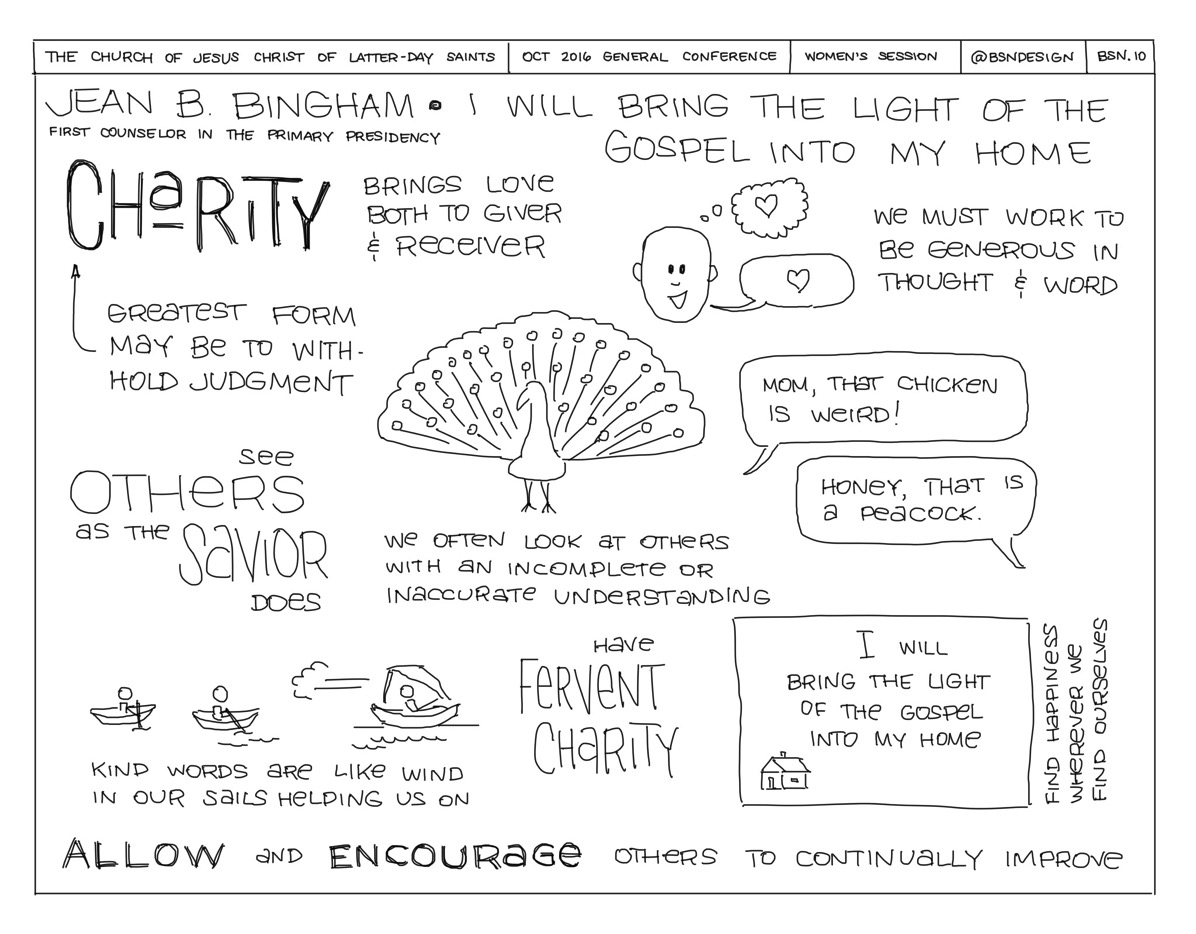 THE CHURCH OF JESUS CHRIST OF LATTER-DAY SAINTS
OCT 2016 GENERAL CONFERENCE
WOMEN'S SESSION
@BSNDESIGN
BSN.10
JEAN B. BINGHAM • I WILL BRING THE LIGHT OF THE
GOSPEL INTO MY HOME
FIRST COUNSELOR IN THE PRIMARY PRESIDENCY
CHARITY
BRINGS LOVE
BOTH TO GIVER
& RECEIVER
WE MUST WORK TO
BE GENEROUS IN
THOUGHT & WORD
GREATEST FORM
MAY BE TO WITH-
HOLD JUDGMENT
MOM, THAT CHICKEN
IS WEIRD!
HONEY, THAT IS
A PEACOCK.
SEE
OTHERS
AS THE SAVIOR
DOES
WE OFTEN LOOK AT OTHERS
WITH AN INCOMPLETE OR
INACCURATE UNDERSTANDING
KIND WORDS ARE LIKE WIND
IN OUR SAILS HELPING US ON
HAVE
FERVENT
CHARITY
I WILL
BRING THE LIGHT
OF THE GOSPEL
INTO MY HOME
FIND HAPPINESS
WHEREVER WE
FIND OURSELVES
ALLOW AND ENCOURAGE OTHERS TO CONTINUALLY IMPROVE